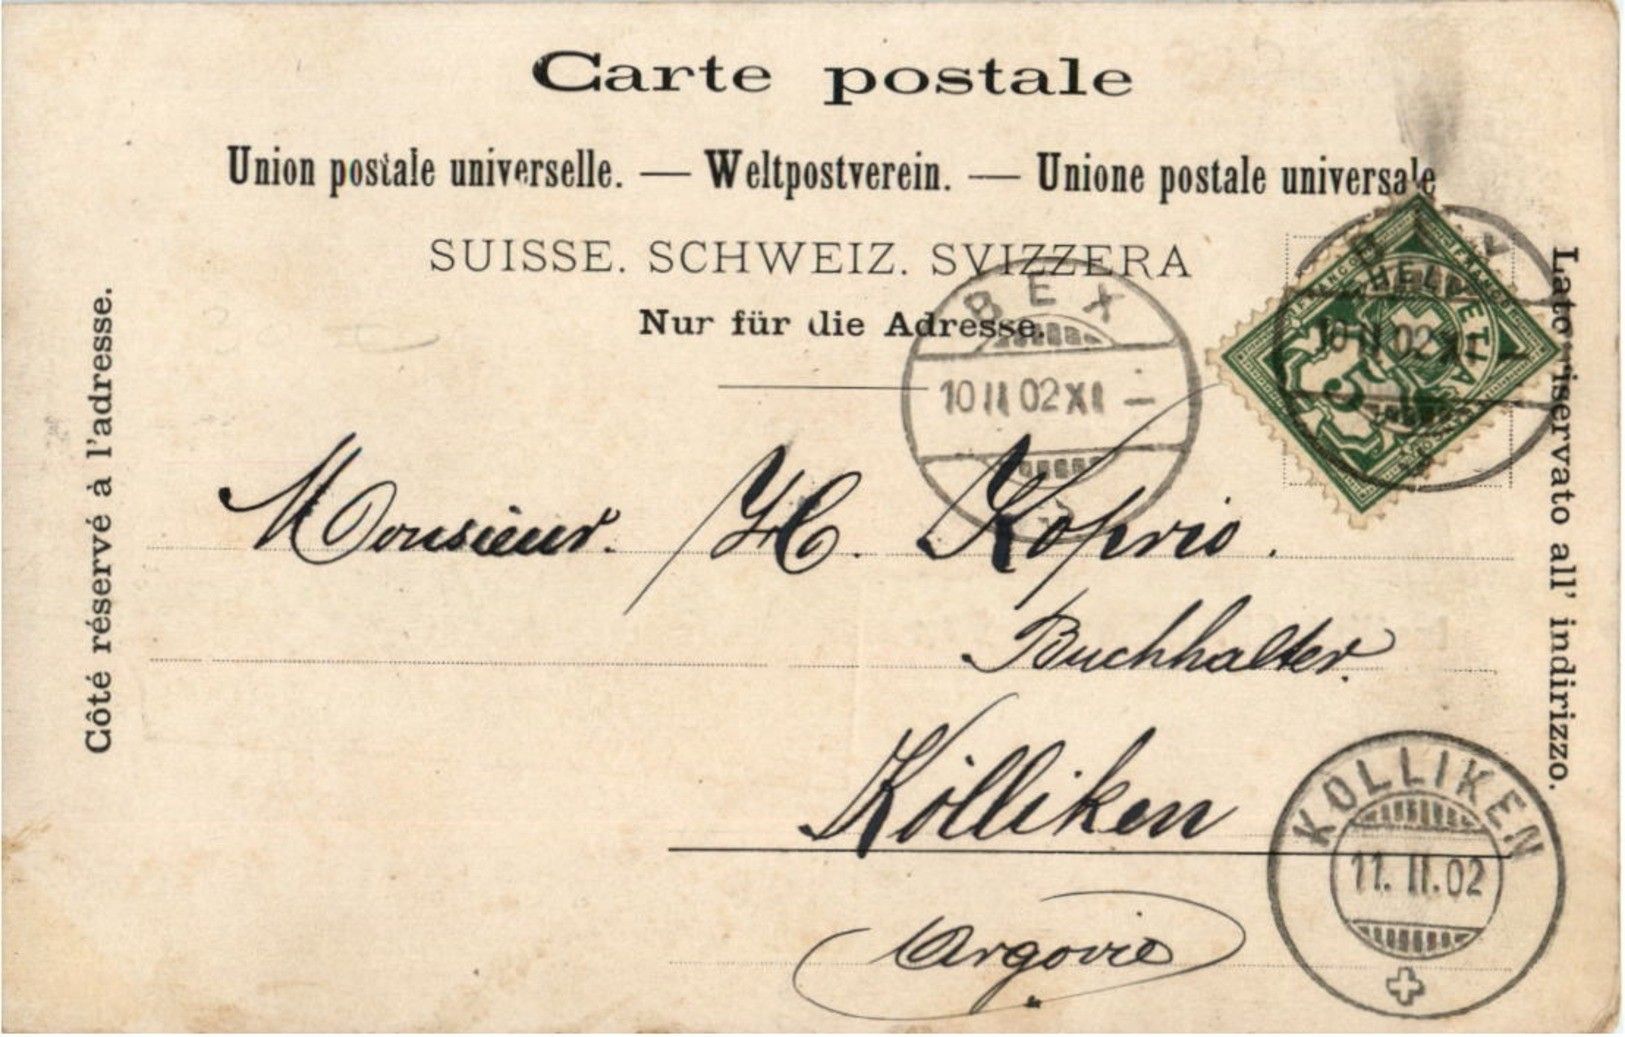 Carte postale
Union postale universelle. — Weltpostverein. — Unione postale universale
SUISSE. SCHWEIZ. SVIZZERA
Nur für die Adresse.
Côté réservé à l'adresse.
Lato riservato all' indirizzo.
BEX
10 II 02 XI –
FRANCO FRANCO
HELVETIA
5
10 II 02 XI –
Monsieur. H. Koprio.
Buchhalter.
Kölliken
Argovie
KÖLLIKEN
11. II. 02